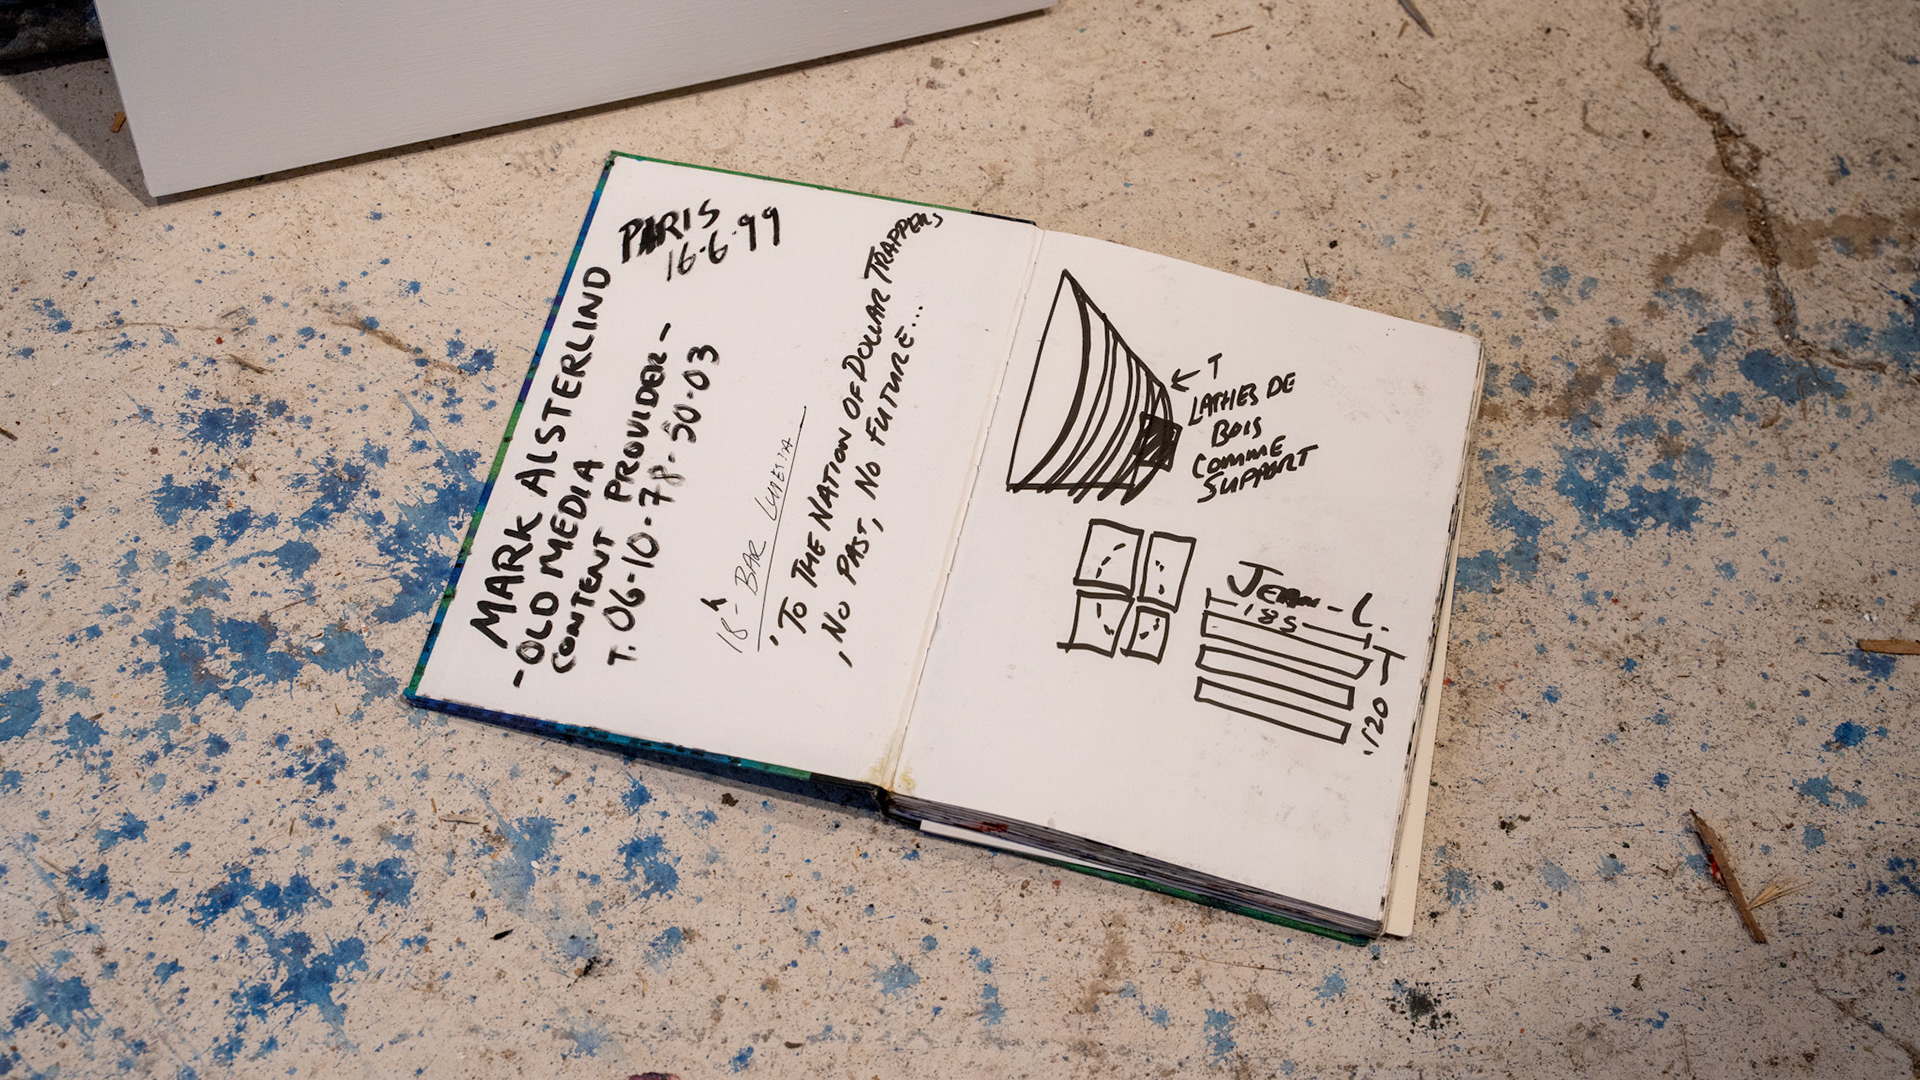 PARIS
16-6-99
MARK ALSTERLIND
-OLD MEDIA
CONTENT PROVIDER-
T. 06-10-78-50-03
18h - BAR LUTETIA
"TO THE NATION OF DOLLAR TRAPPERS
, NO PAST, NO FUTURE...
← T
LATHES DE
BOIS
COMME
SUPPORT
JEAN-L.
185
T
.120